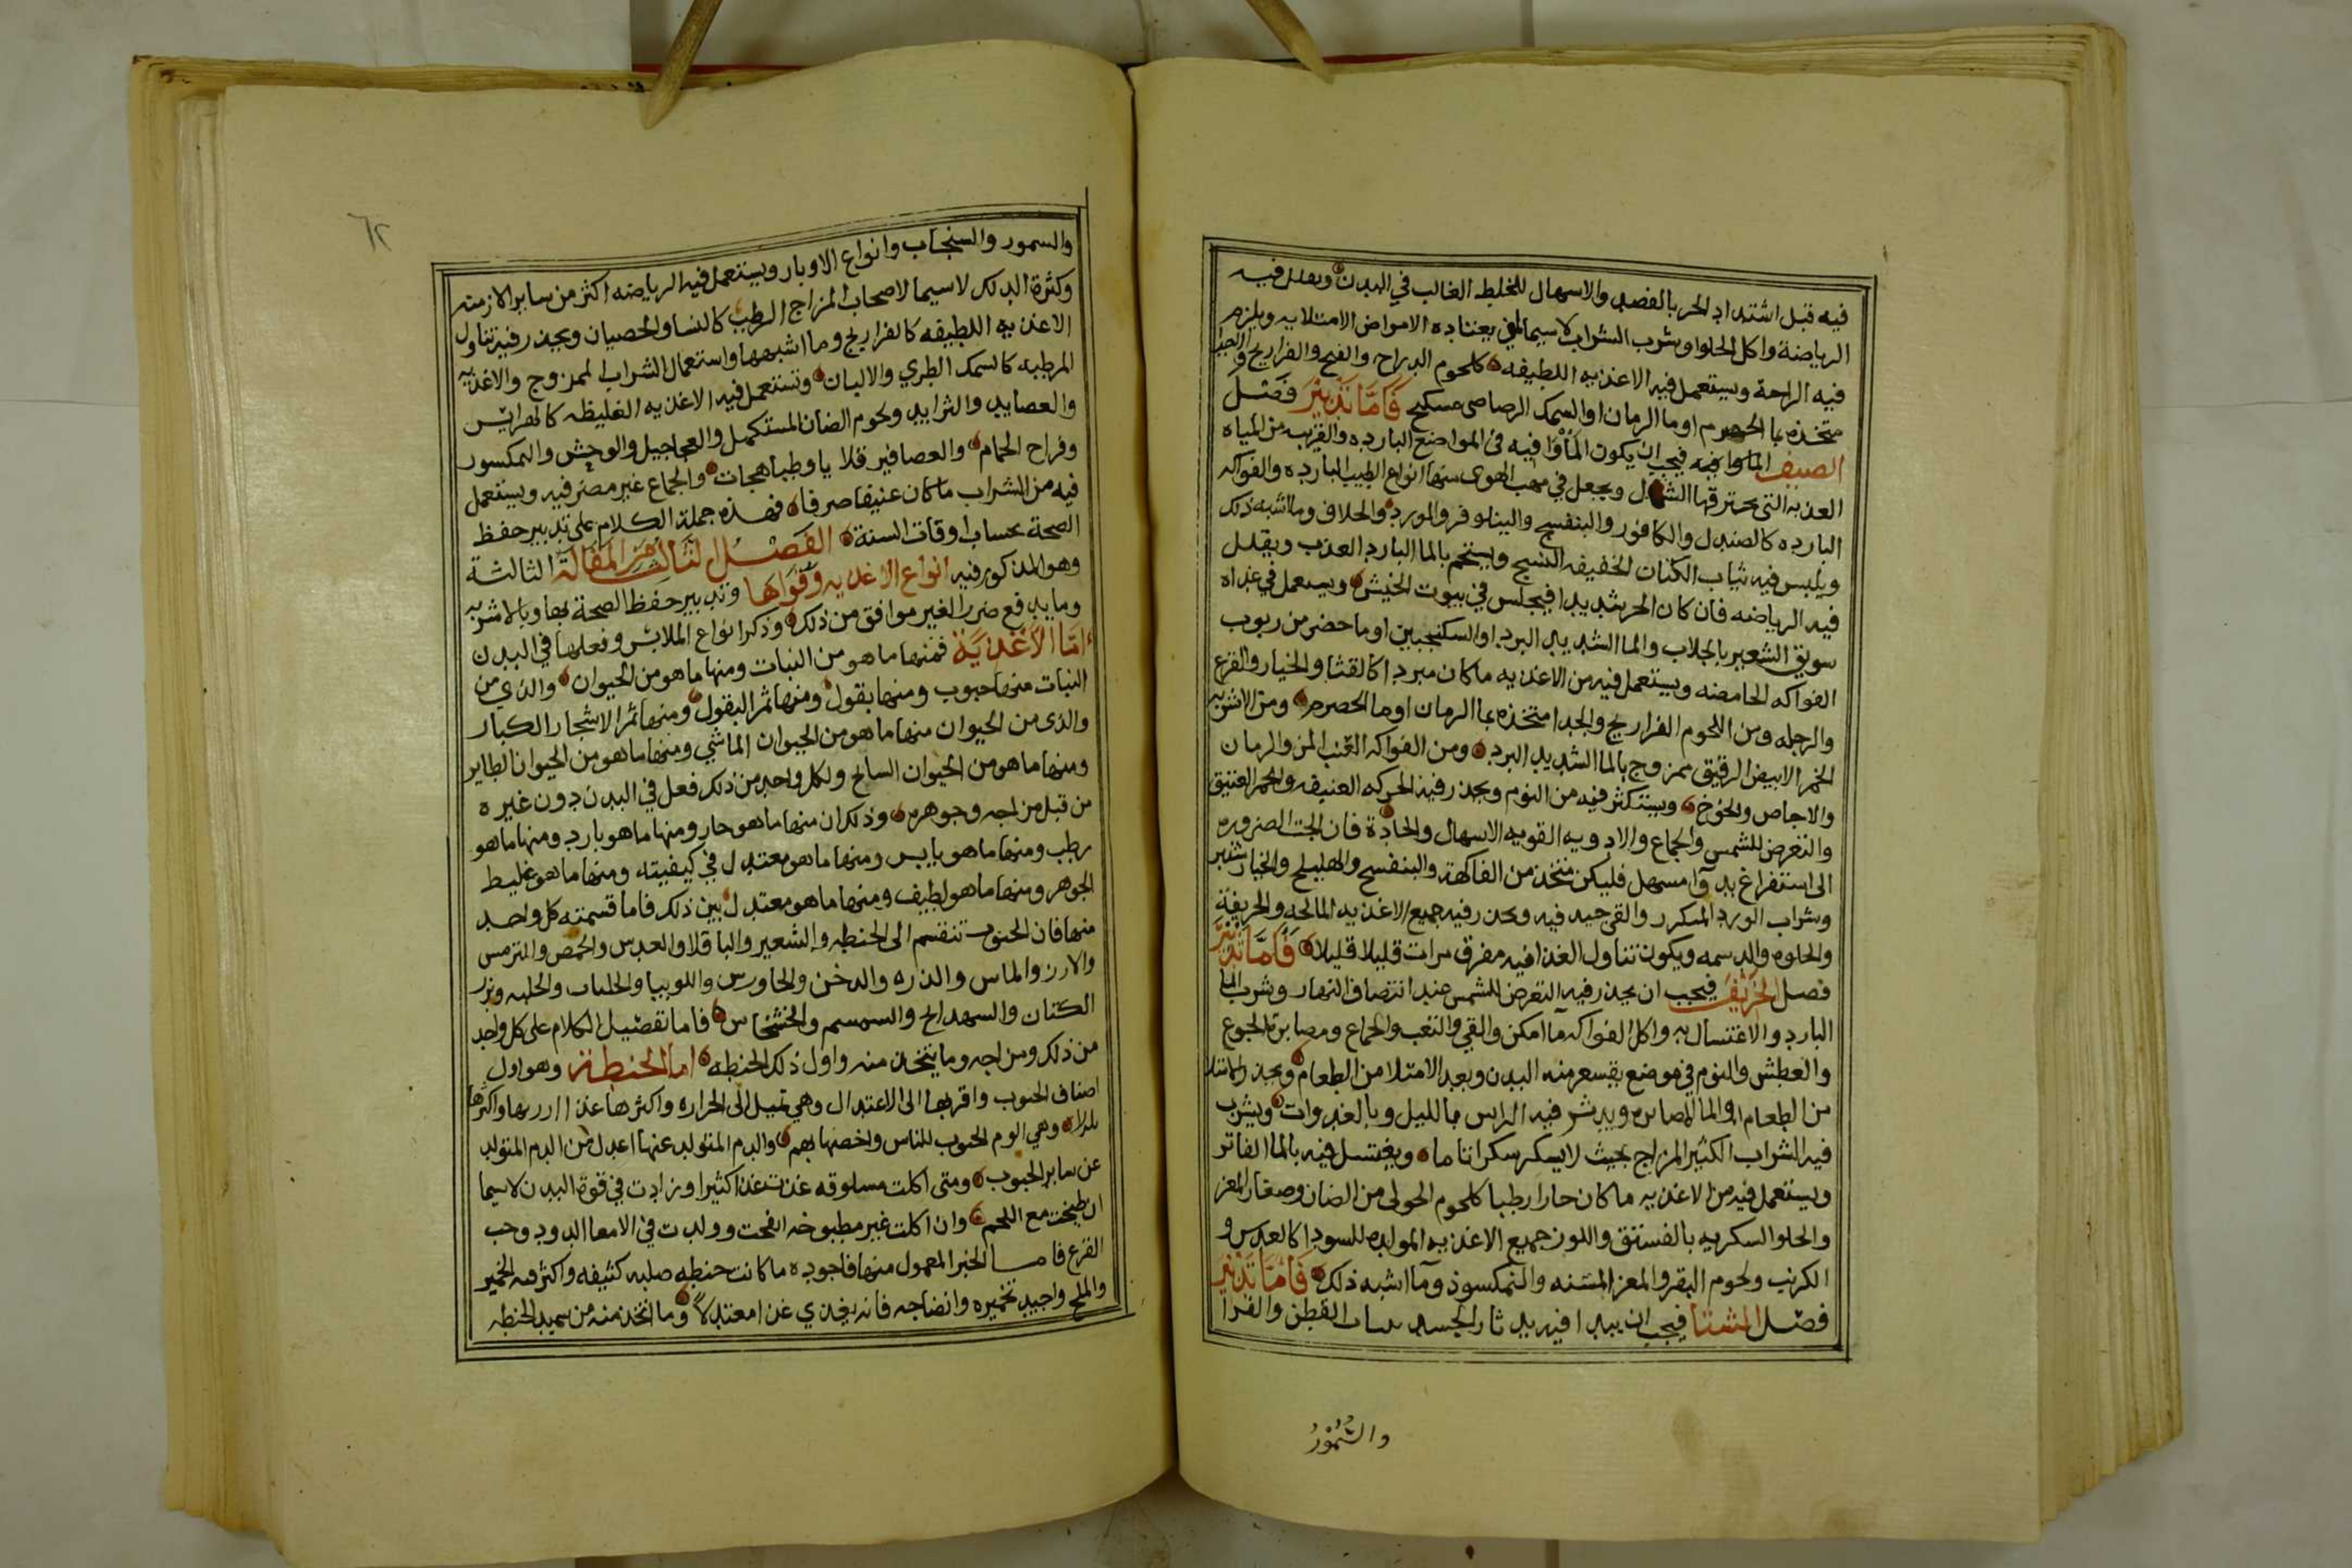 فيه قبل اشتداد الحر بالفصد والاسهال للخلط الغالب في البدن ويقلل فيه
الرياضة واكل الحلوا وشرب الشراب لاسيما لمن يعتاده الامراض الامتلايه ويلزم
فيه الراحة ويستعمل فيه الاغذيه اللطيفه كلحوم الدراج والقبج والفراريج والجدا
متخذه بما الحصرم او ما الرمان او السمك الرصاصي مسكبج فَامَّا تَدْبِيْرُ فَصْل
الصيف فيجب ان يكون المأوا فيه في المواضع البارده والقريبه من المياه
العذبه التي يخترقها الشمال ويجعل في مهب الهوى منها انواع الطيب البارده والفواكه
البارده كالصندل والكافور والبنفسج والنيلوفر والورد والخلاف وما اشبه ذلك
ويلبس فيه ثياب الكتان الخفيفه النسج ويستحم بالما البارد العذب ويقلل
فيه الرياضه فان كان الحر شديدا فيجلس في بيوت الخيش ويستعمل في غداه
سويق الشعير بالجلاب والما الشديد البرد او السكنجبين او ما حضر من ربوب
الفواكه الحامضه ويستعمل فيه من الاغذيه ماكان مبردا كالقثا والخيار والقرع
والرجله ومن اللحوم الفراريج والجدا متخذه بما الرمان او ما الحصرم ومن الاشربه
الخمر الابيض الرقيق ممزوج بالما الشديد البرد ومن الفواكه العنب المز والرمان
والاجاص والخوخ ويستكثر فيه من النوم ويحذر فيه الحركه العنيفه والخمر العتيق
والتعرض للشمس والجماع والادويه القويه الاسهال والحادة فان الجت الضروره
الى استفراغ بدوآ مسهل فليكن متخذ من الفاكهة والبنفسج والهليلج والخيار شنبر
وشراب الورد المكرر والقي جيد فيه ويحذر فيه جميع الاغذيه المالحه والحريفة
والحلوه والدسمه ويكون تناول الغذا فيه مفرق مرات قليلا قليلا فَامَّا تَدْبِيْرُ
فصل الخَرِيْف فيجب ان يحذر فيه التعرض للشمس عند انتصاف النهار وشرب الما
البارد والاغتسال به واكل الفواكه ما امكن والقي والتعب والجماع ومصابرة الجوع
والعطش والنوم في موضع يقشعر منه البدن وبعد الامتلا من الطعام ويحذر الامتلا
من الطعام او الما المصابره ويدثر فيه الراس بالليل وبالغدوات ويشرب
فيه الشراب الكثير المزاج بحيث لايسكر سكرا تاما ويغتسل فيه بالما الفاتر
ويستعمل فيه من الاغذيه ماكان حارا رطبا كلحوم الحولي من الضان وصغار المعز
والحلوا السكريه بالفستق واللوز جميع الاغذيه المولده للسودا كالعدس و
الكرنب ولحوم البقر والمعز المسنه والنمكسوذ وما اشبه ذلك فَامَّا تَدْبِيْر
فصل الشتا فيجب ان يبدا فيه بدثار الجسد بثياب القطن والفرا
والسَّمُّوْرُ
٦٢
والسمور والسنجاب وانواع الاوبار ويستعمل فيه الرياضه اكثر من ساير الازمنه
وكثرة الدلك لاسيما لاصحاب المزاج الرطب كالنسا والخصيان ويحذر فيه تناول
الاغذيه اللطيفه كالفراريج وما اشبهها واستعمال الشراب الممزوج والاغذيه
المرطبه كالسمك الطري والالبان وتستعمل فيه الاغذيه الغليظه كالهرايس
والعصايد والثرايد ولحوم الضان المستكمل والعجاجيل والوحش والنمكسود
وفراح الحمام والعصافير قلايا وطباهجات والجماع غير مضر فيه ويستعمل
فيه من الشراب ماكان عتيقا صرفا فهذه جملة الكلام على تدبير حفظ
الصحة بحساب اوقات السنة الفَصْلُ الثالث مِنَ المَقَالة الثالثة
وهو المذكور فيه انواع الاغذيه وَقُوَاهَا وتدبير حفظ الصحة بها وبالاشربه
وما يدفع ضرر الغير موافق من ذلك وذكر انواع الملابس وفعلها في البدن
امَّا الاَغْذِيَة فمنها ما هو من النبات ومنها ما هو من الحيوان والذي من
النبات منها حبوب ومنها بقول ومنها ثمر البقول ومنها ثمر الاشجار الكبار
والذى من الحيوان منها ما هو من الحيوان الماشي ومنها ما هو من الحيوان الطاير
ومنها ما هو من الحيوان السابح ولكل واحد من ذلك فعل في البدن دون غيره
من قبل مزاجه وجوهره وذلك ان منها ما هو حار ومنها ما هو بارد ومنها ما هو
رطب ومنها ما هو يابس ومنها ما هو معتدل في كيفيته ومنها ما هو غليظ
الجوهر ومنها ما هو لطيف ومنها ما هو معتدل بين ذلك فاما قسمته كل واحد
منها فان الحبوب تنقسم الى الحنطه والشعير والباقلا والعدس والحمص والترمس
والارز والماس والذره والدخن والجاورس واللوبيا والجلبان والحلبه وبزر
الكتان والشهدانج والسمسم والخشخاش فاما تفصيل الكلام على كل واحد
من ذلك ومزاجه وما يتخذ منه واول ذلك الحنطه اما الحنطة وهو اول
اصناف الحبوب واقربها الى الاعتدال وهي تميل الى الحراره واكثرها غذا ارزنها واكثرها
تلززا وهي الوم الحبوب للناس واخصها بهم والدم المتولد عنها اعدل من الدم المتولد
عن ساير الحبوب ومتى اكلت مسلوقه غذت غذا كثيرا وزادت في قوة البدن لاسيما
ان طبخت مع اللحم وان اكلت غير مطبوخه انفخت وولدت في الامعا الدود وحب
القرع فامــا الخبز المعمول منها فاجوده ما كانت حنطه صلبه كثيفه واكثر فيه الخمير
والملح واجيد تخميره وانضاجه فانه يغذي غذا معتدلاً وما اتخذ منه من سميد الحنطه